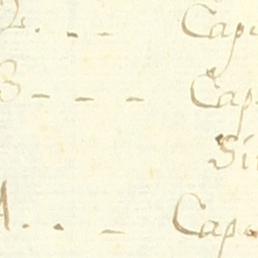 2. - - Capi
3 - - - Cap
Si
A. . - Cap